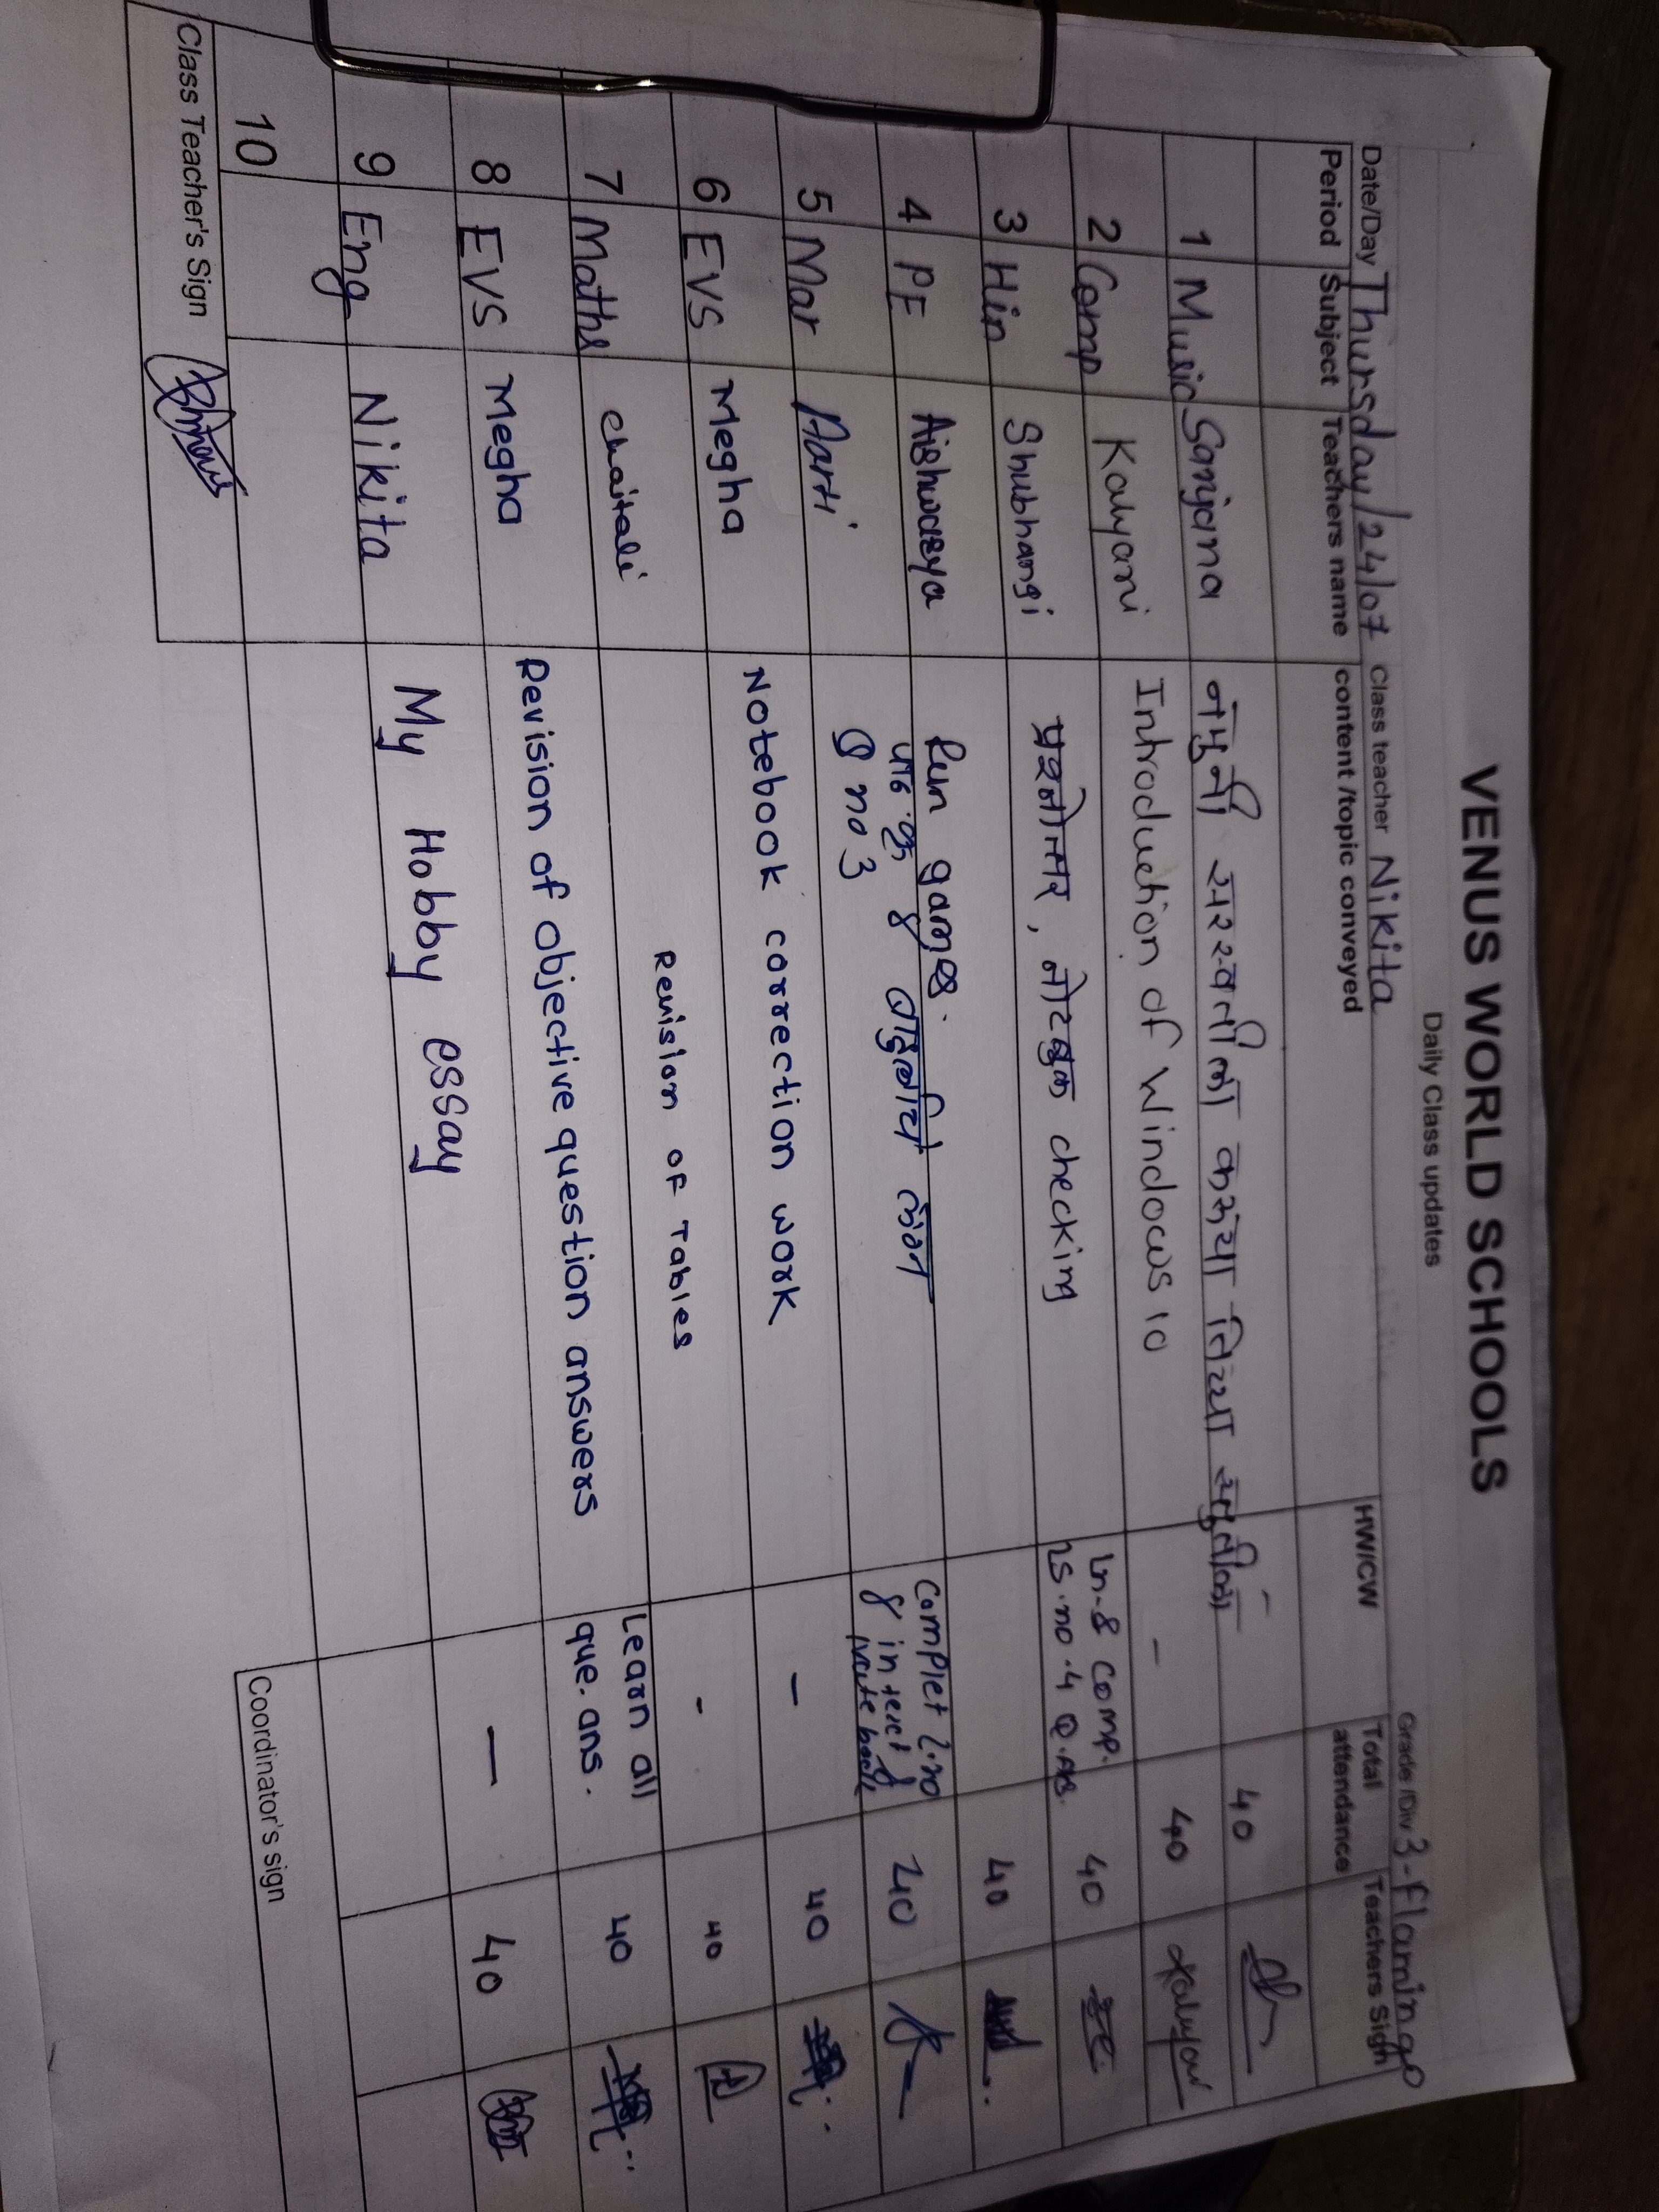 VENUS WORLD SCHOOLS
Daily Class updates
Date/Day Thursday/24/07 Class teacher Nikita Grade /Div 3-flamingo
Period Subject Teachers name content /topic conveyed HW/CW Total attendance Teachers Sign
1 Music Sanjana नमुनी सरस्वतीला कसंया तिच्या - 40
2 Comp Kalyani Introduction of Windows 10 - 40 Kalyani
3 Hin Shubhangi प्रश्नोत्तर, नोटबुक checking Ln-8 comp. 40
Ls.no.4 Q.Ans.
4 PE Aishwarya fun games. 40
5 Mar Aarti पाठ क्र 8 Complet l.no 40
Q no 3 8 in text &
write book
6 EVS Megha Notebook correction work - 40
7 Maths Chaitali Revision of Tables - 40
8 EVS Megha Revision of objective question answers Learn all 40
que. ans.
9 Eng Nikita My Hobby essay - 40
10
Class Teacher's Sign Coordinator's sign